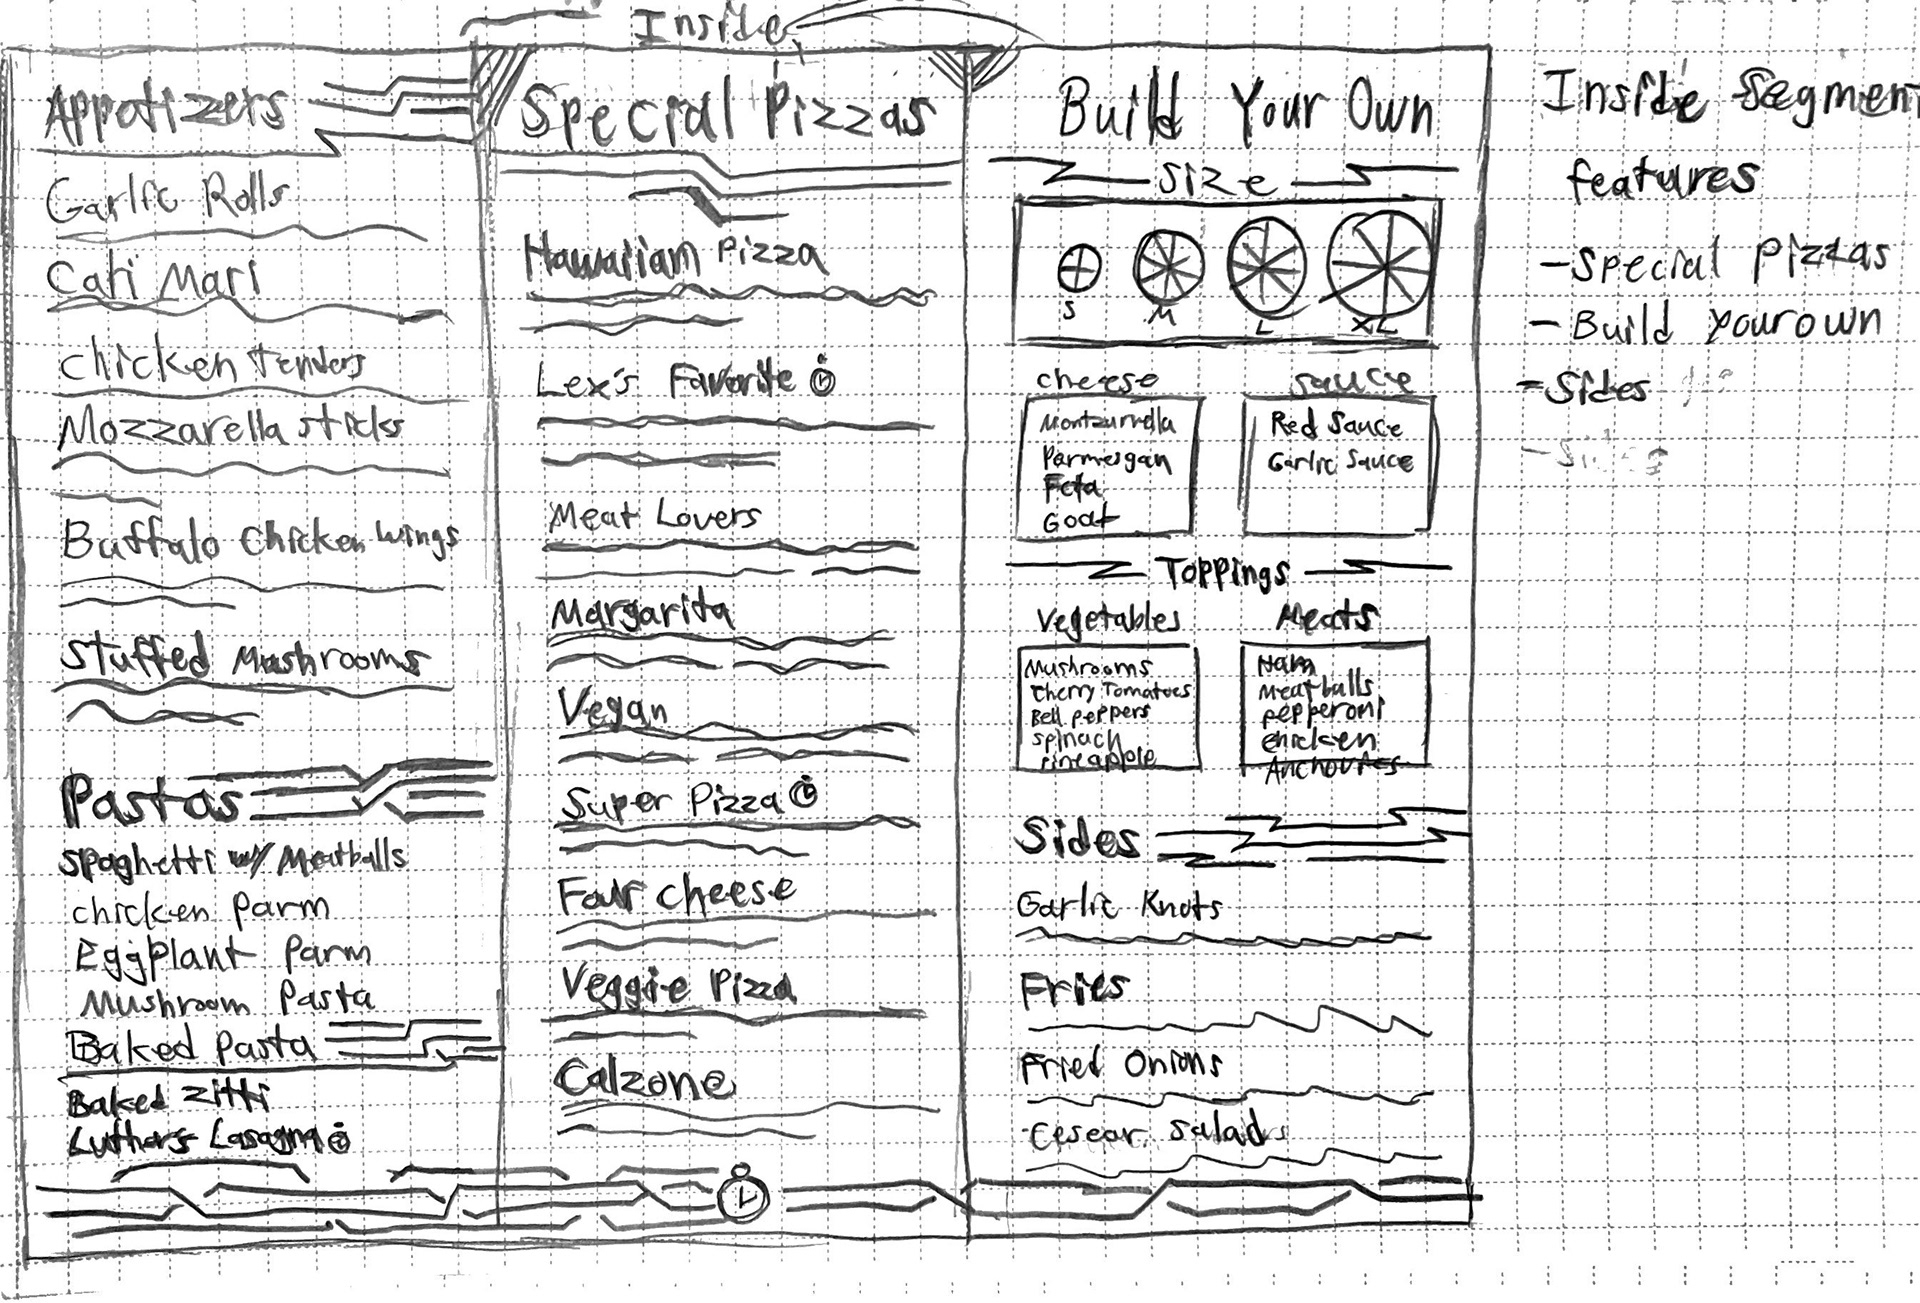 Inside
Appotizers
Garlic Rolls
Cali Mari
chicken tenders
Mozzarella sticks
Buffalo chicken wings
Stuffed Mushrooms
Pastas
Spaghetti w/ Meatballs
chicken parm
Eggplant parm
Mushroom Pasta
Baked Pasta
Baked zitti
Luthor's Lasagna
Special Pizzas
Hawaiian Pizza
Lex's Favorite
Meat Lovers
Margarita
Vegan
Super Pizza
Four cheese
Veggie Pizza
Calzone
Build Your Own
size
S M L XL
cheese
Montzurrella
Parmesgan
Feta
Goat
sauce
Red Sauce
Garlic Sauce
Toppings
Vegetables
Mushrooms
Cherry Tomatoes
Bell peppers
spinach
Pineapple
Meats
Ham
Meatballs
pepperoni
chicken
Sides
Garlic Knots
Fries
Fried Onions
Cesear salad
Inside Segment
features
- Special Pizzas
- Build your own
- Sides